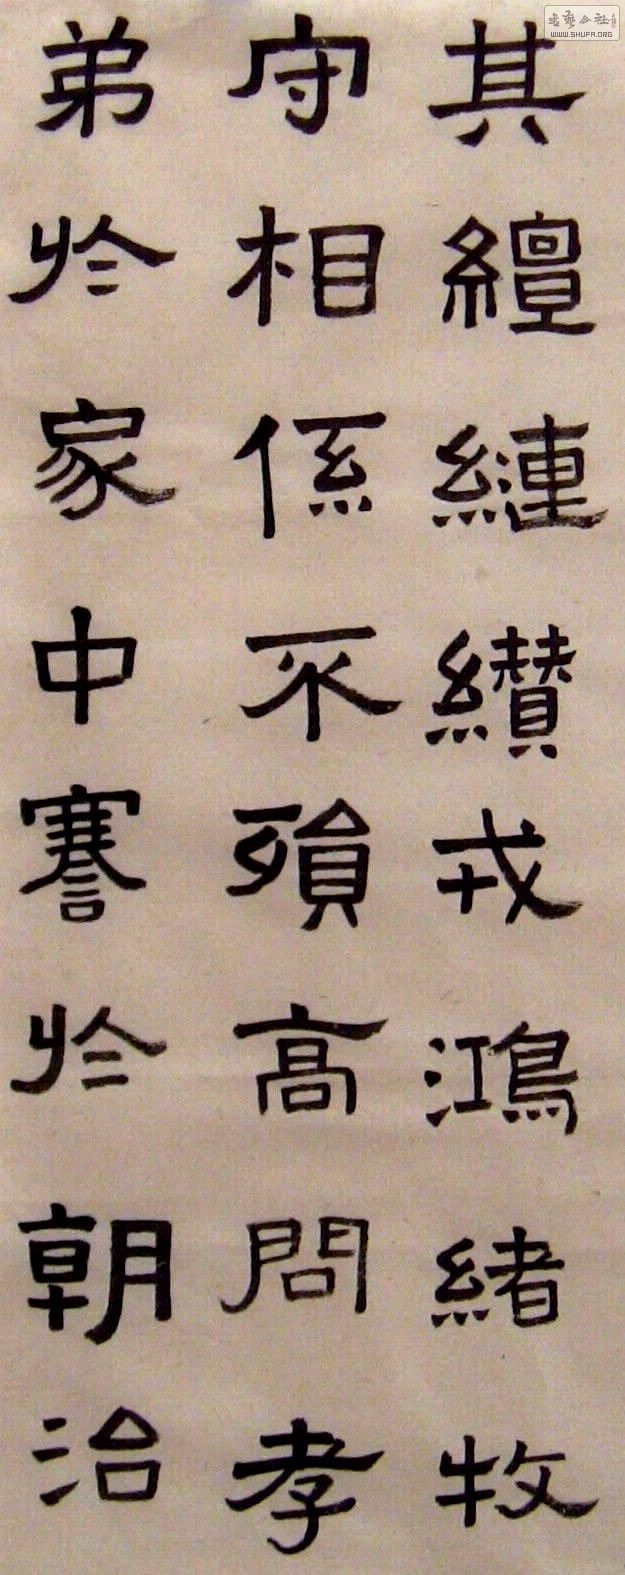 其繵縺纘戎鴻緒牧
守相係不殞高問孝
弟於家中謇於朝治
書藝公社
WWW.SHUFA.ORG